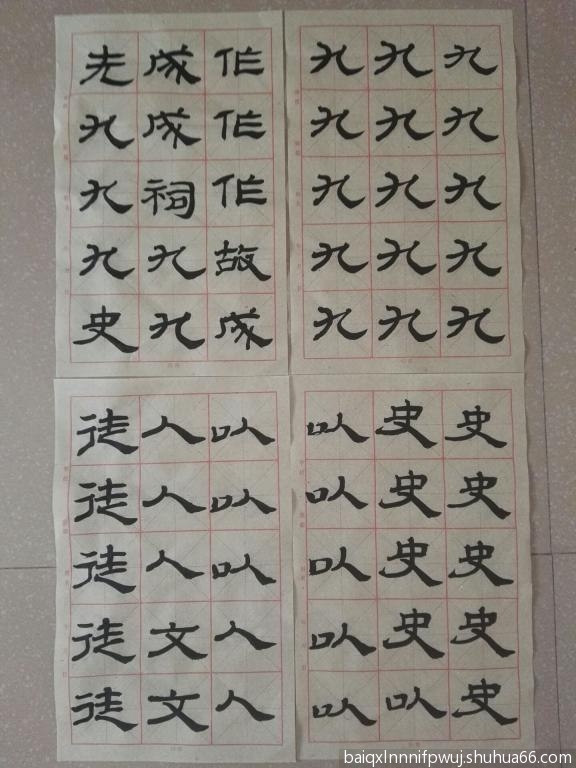 九九九九九
九九九九九
九九九九九
作作作故成
成成祠九九
先九九九史
史史史史史
史史史史以
以以以以以
以以以人人
人人人文文
徒徒徒徒徒
baiqxlnnnifpwuj.shuhua66.com